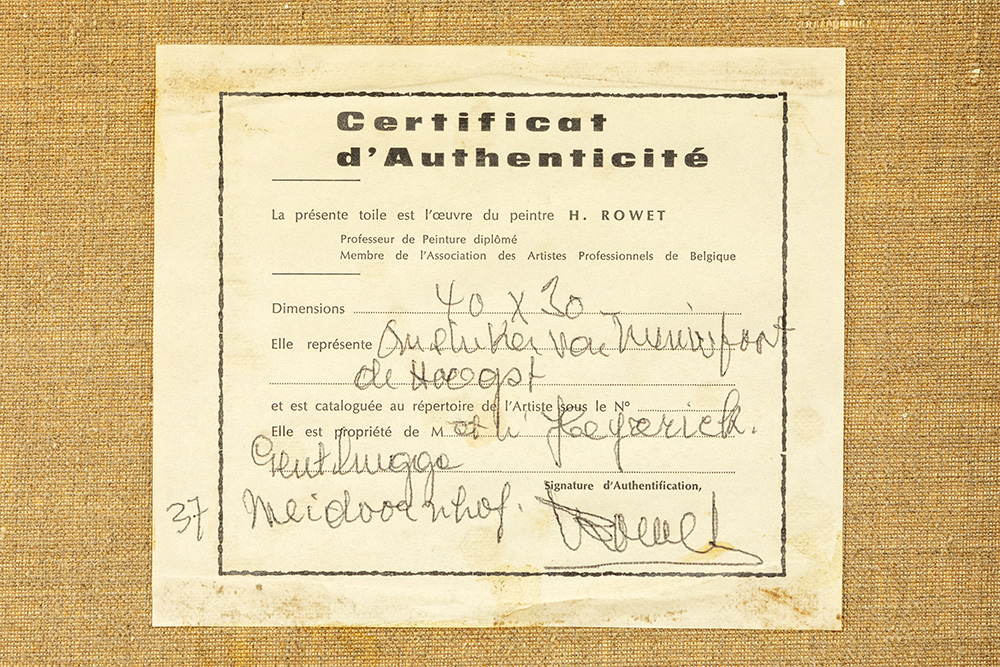 Certificat
d'Authenticité
La présente toile est l'œuvre du peintre H. ROWET
Professeur de Peinture diplômé
Membre de l'Association des Artistes Professionnels de Belgique
Dimensions 40 x 30
Elle représente
de Hoogst
et est cataloguée au répertoire de l'Artiste sous le N°
Elle est propriété de M
Gentbrugge
Signature d'Authentification,
37 Meidoornhof.
Rowet